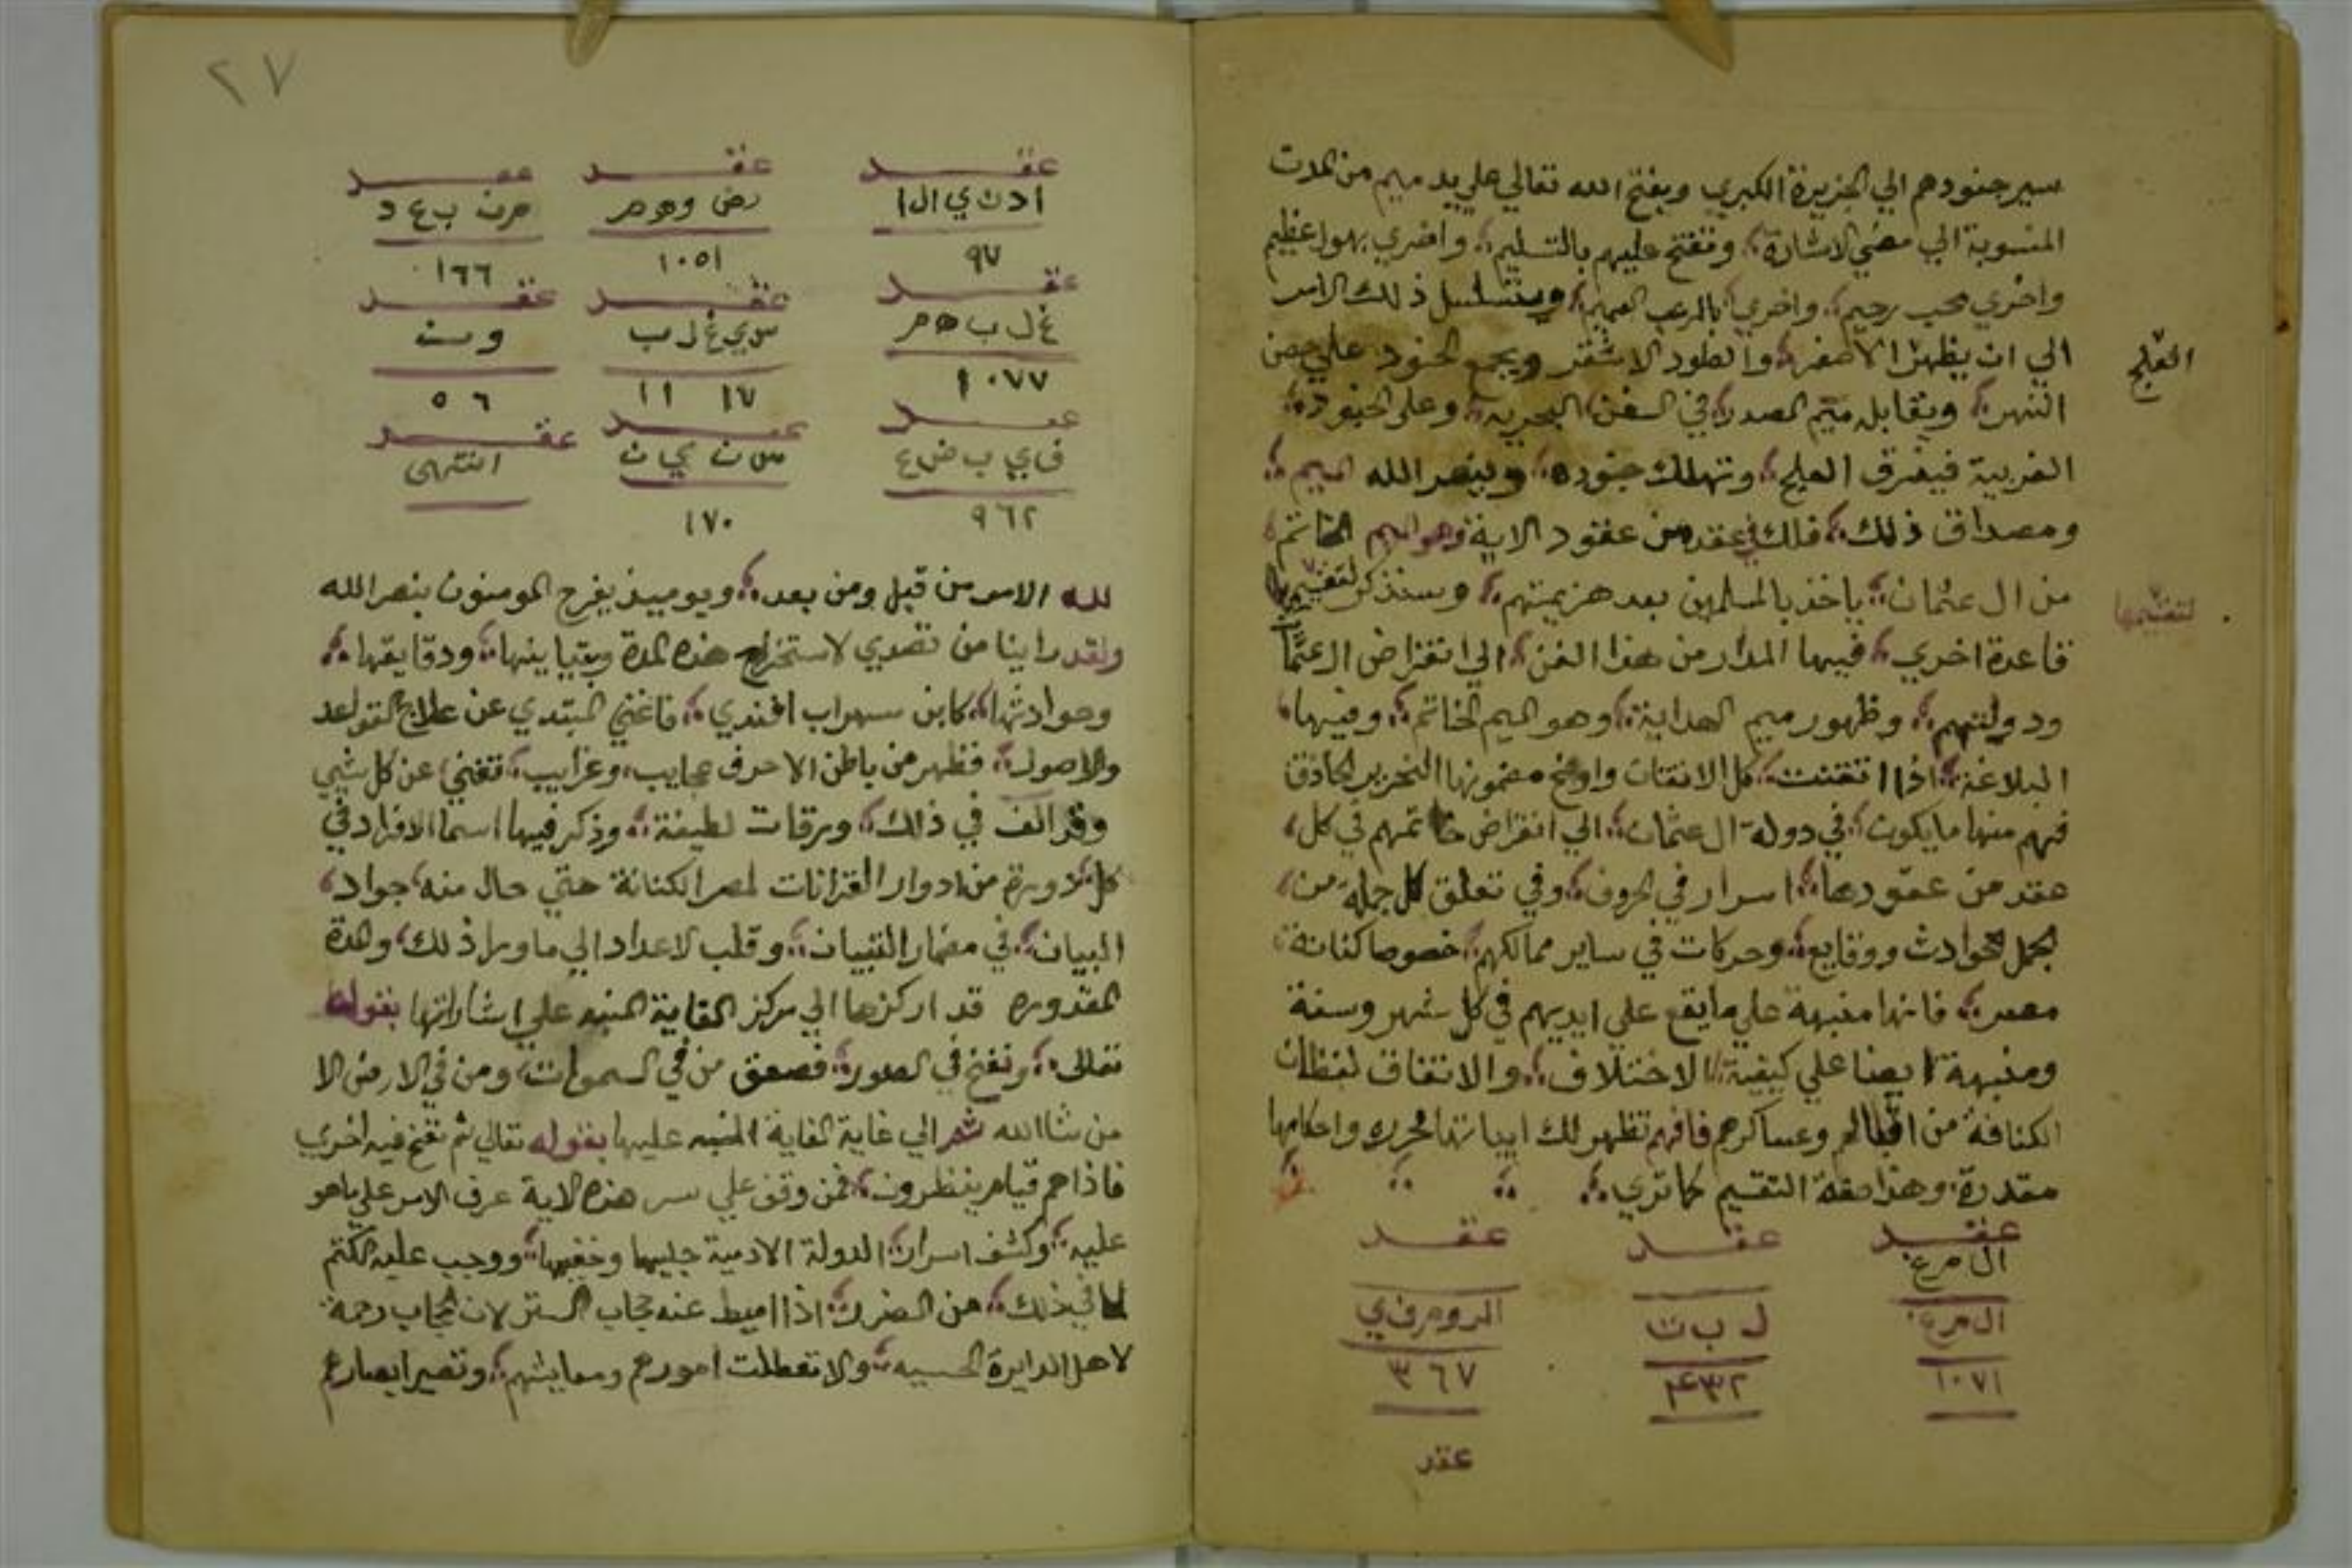 سير جنودهم الي الجزيرة الكبري ويفتح الله تعالي علي يد ميم من المدت
المنسوبة الي مضي الاشارة وتفتح عليهم بالتسليم واخري بهول عظيم
واخري محب رحيم واخري بالرعب العميم ويتسلسل ذلك الامر
الي ان يظهر الاصفر والطود الاشقر ويجمع الجنود علي حصن
العلج
النهر ويقابله ميم الصدر في السفن البحريه وعلي الجنود
الغربية فيغرق العلج وتهلك جنوده وينصر الله الميم
ومصداق ذلك فلك في عقد من عقود الاية وهو الميم الخاتم
من ال عثمان ياخذ بالمسلمين بعد هزيمتهم وسنذكر لتقسيمها
لتقسيمها
قاعدة اخري فيها المدار من هذا الفن الي انقراض ال عثمان
ودولتهم وظهور ميم الهداية وهو الميم الخاتم وفيها
البلاغة اذا اتقنت كل الاتقان واوضح مضمونها النحرير الحاذق
فهم منها ما يكون في دولة ال عثمان الي انقراض خاتمهم في كل
عقد من عقودها اسرار في الحروف وفي تعلق كل جملة من
الجمل حوادث ووقايع وحركات في ساير ممالكهم خصوصا كنانة
مصر فانها منبهة علي ما يقع علي ايديهم في كل شهر وسنة
ومنبهة ايضا علي كيفية الاختلاف والاتفاق لفظان
الكنافة من اقبالهم وعساكرهم فافهم تظهر لك ابياتها محررة واحكامها
مقدرة وهذا صفة التقسيم كما تري
عقد عقد عقد
ال م غ
ال م غ ل ب ت الروم ف ي
١٠٧١ ٤٣٢ ٣٦٧
عقد
٢٧
عقد عقد عقد
ا د ن ي ال ا رض وهم م ن ب ع د
٩٧ ١٠٥١ ١٦٦
عقد عقد عقد
غ ل ب ه م س ي غ ل ب و س
١٠٧٧ ١١ ١٧ ٥٦
عقد عقد عقد
ف ي ب ض ع س ن ي ن انتهى
٩٦٢ ١٧٠
لله الامر من قبل ومن بعد ويوميذ يفرح المومنون بنصر الله
ولقد راينا من تصدي لاستخراج هذه المدة وتباينها ودقايقها
وحوادثها كابن سهراب افندي فاغني المبتدي عن علاج القواعد
والاصول فظهر من باطن الاحرف عجايب وغرايب تغني عن كل شي
وقد الف في ذلك ورقات لطيفة وذكر فيها اسما الافراد في
كل دورة من ادوار القرانات لمصر الكنانة حتي حال منه جواد
البيان في مضمار التبيان وقلب الاعداد الي ما ورا ذلك وهذة
المقدوره قد اركزها الي مركز الغاية المنبه علي اشاراتها بقوله
تعالى ونفخ في الصور فصعق من في السموات ومن في الارض الا
من شا الله ثم الي غاية الغاية المنبه عليها بقوله تعالي ثم نفخ فيه اخري
فاذا هم قيام ينظرون فمن وقف علي سر هذه الاية عرف الامر علي ما هو
عليه وكشف اسرار الدولة الادمية جليها وخفيها ووجب عليه الكتم
لما في ذلك من الضرر اذا اميط عنه حجاب الستر لان الحجاب رحمة
لاهل الدايرة الحسيه والا تعطلت امورهم ومعايشهم وتصير ابصارهم